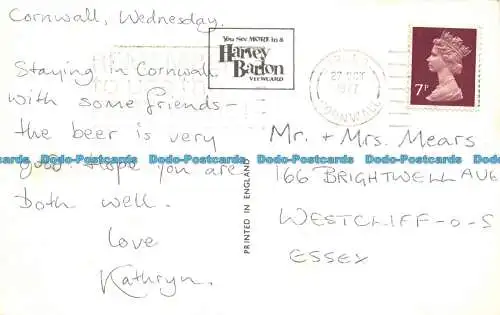 Cornwall, Wednesday.
Staying in Cornwall
with some friends -
the beer is very
good. Hope you are
both well.
Love
Kathryn.
You See MORE in a
Harvey
Barton
VIEWCARD
27 OCT
1977
CORNWALL
7P
Mr. + Mrs. Mears
166 BRIGHTWELL AVE
WESTCLIFF-O-S
ESSEX
PRINTED IN ENGLAND
Doco-Postcards Doco-Postcards Doco-Postcards Doco-Postcards